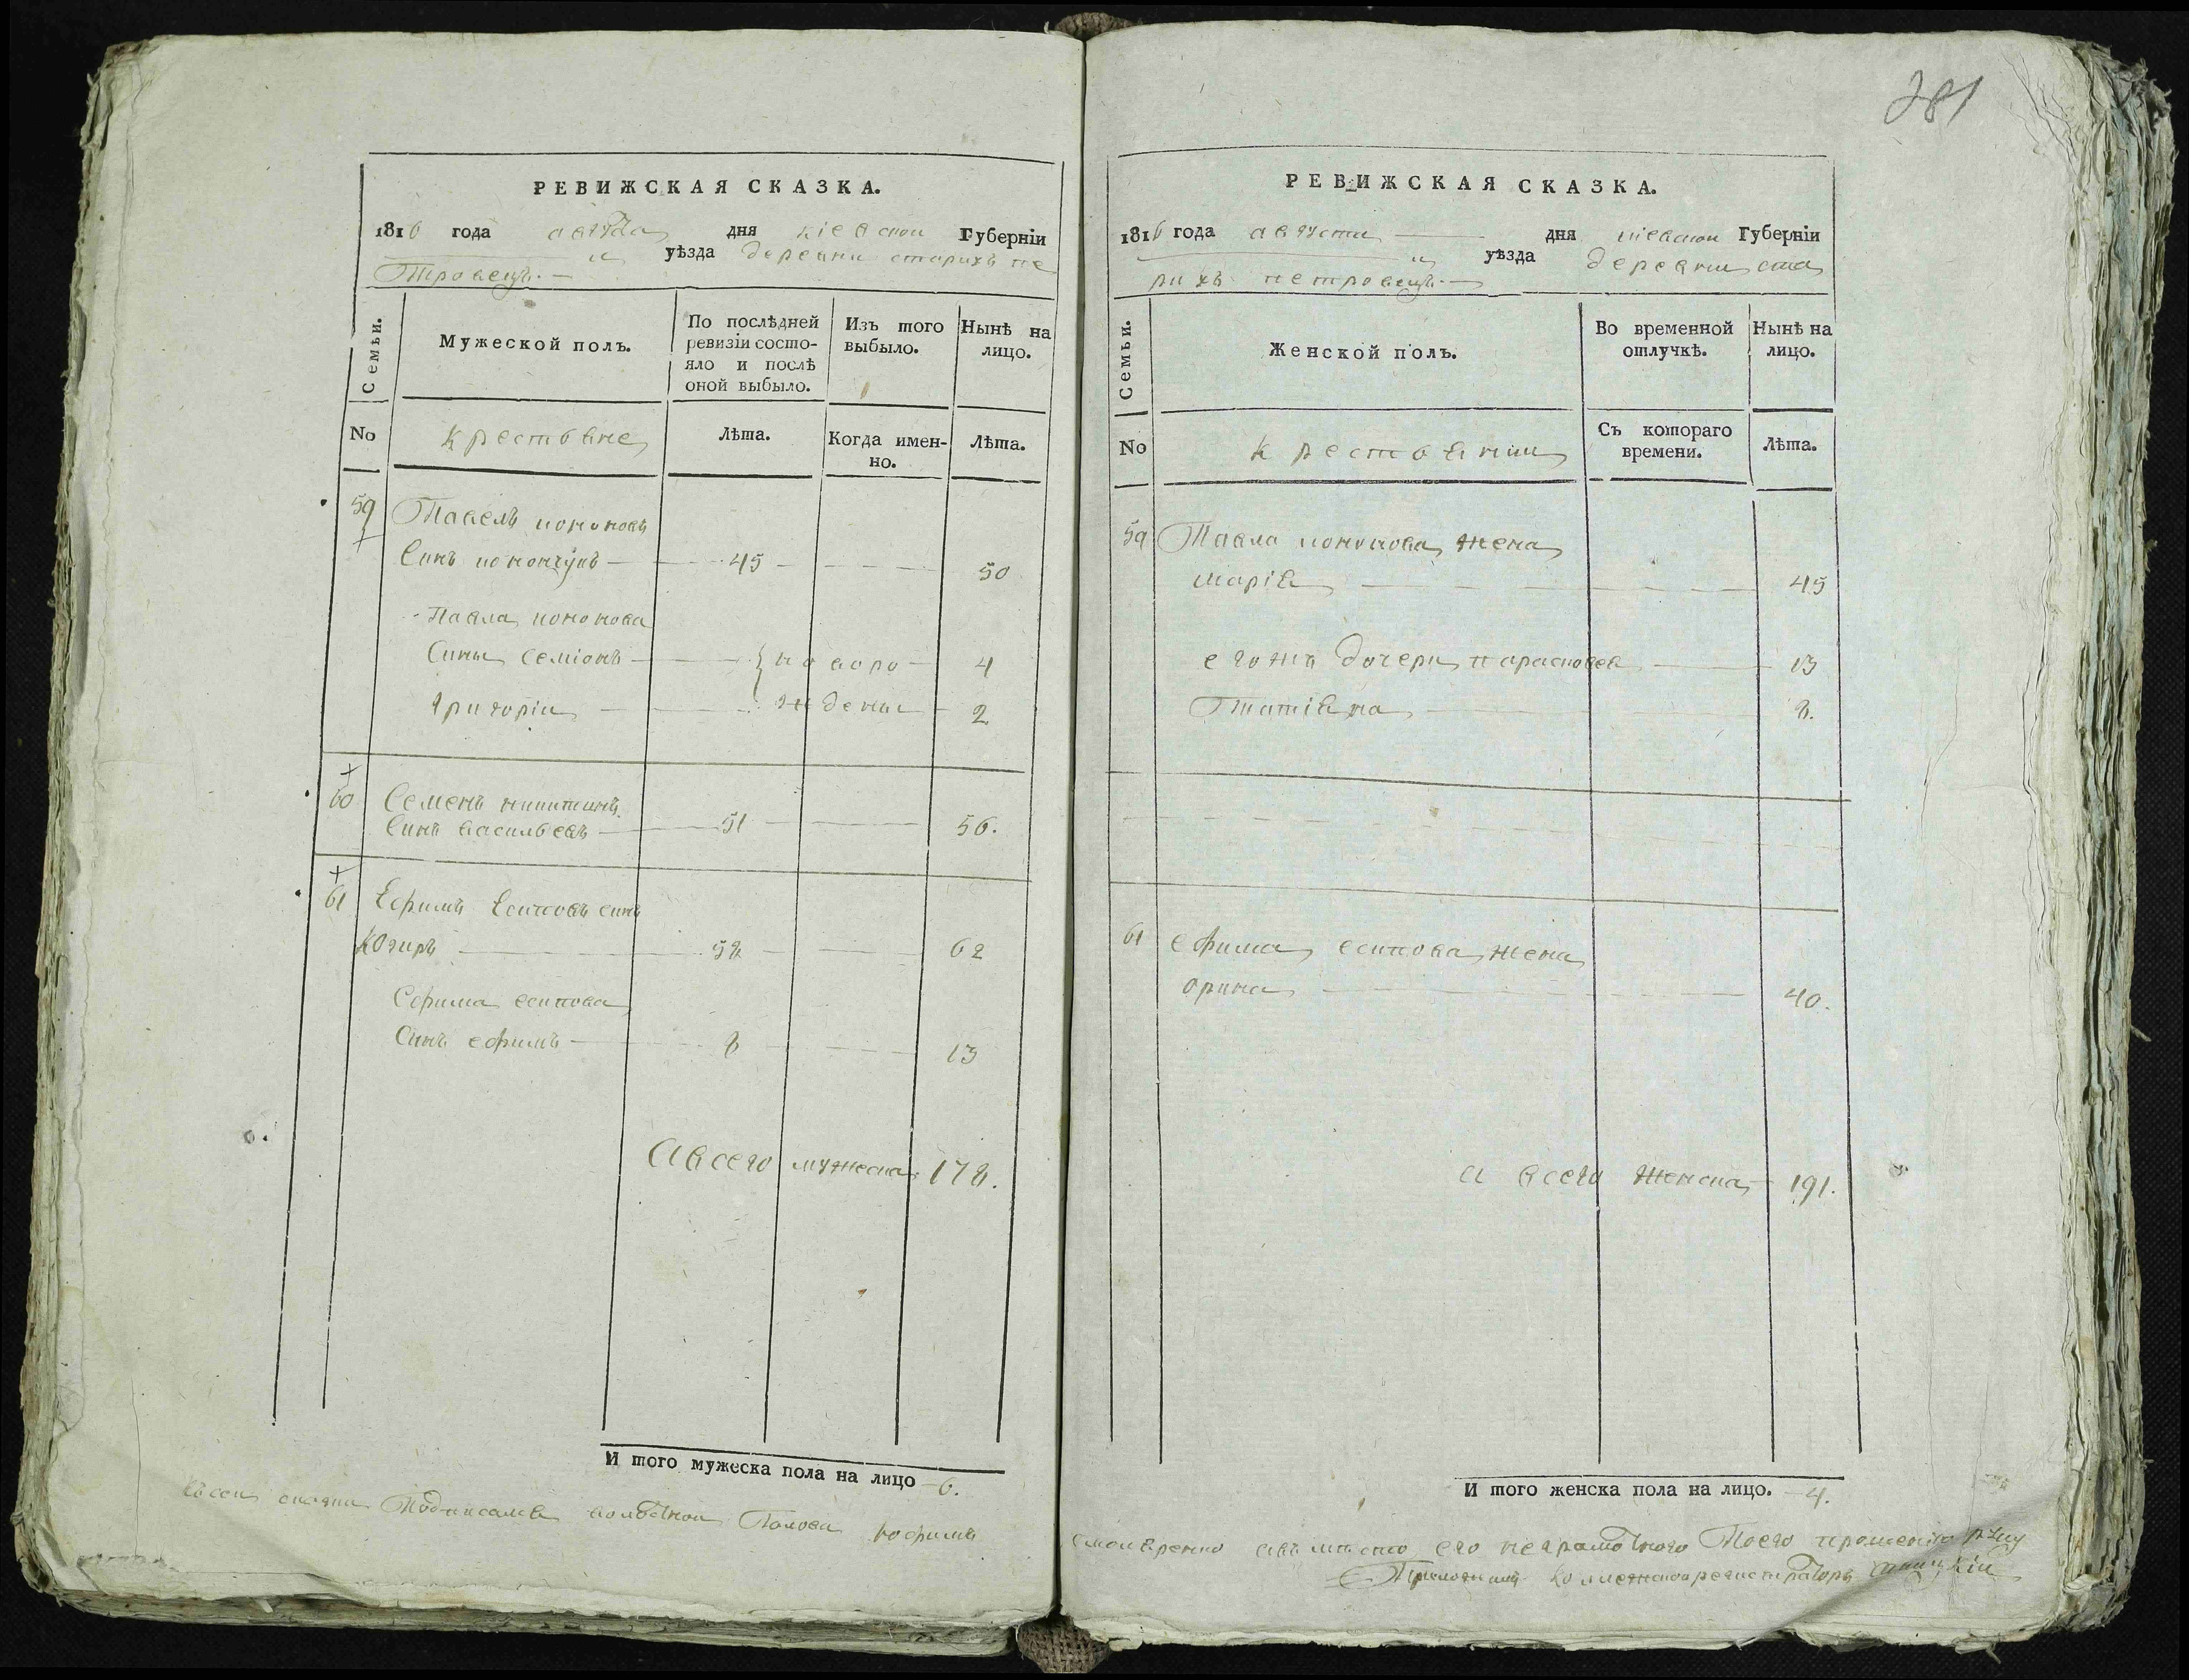 РЕВИЖСКАЯ СКАЗКА.
1816 года августа дня кіевской Губерніи
и уѣзда деревни старихъ пе
тровецъ.
Семьи.
Мужеской полъ.
По послѣдней
ревизіи состо-
яло и послѣ
оной выбыло.
Изъ того
выбыло.
Нынѣ на
лицо.
No
крестьяне
Лѣта.
Когда имен-
но.
Лѣта.
59 Павелъ кононовъ
Синъ конончукъ 45 50
Павла кононова
Сины Семіонъ новоро 4
григоріи ждены 2
60 Семенъ никитинъ
Синъ васильевъ 51 56.
61 Ефимъ Есиповъ синъ
Когиръ 62
Ефима есипова
Синъ ефимъ 8 13
А всего мужеска 178.
И того мужеска пола на лицо 6.
381
РЕВИЖСКАЯ СКАЗКА.
1816 года августа дня кіевской Губерніи
и уѣзда деревни ста
рихъ петровецъ.
Семьи.
Женской полъ.
Во временной
отлучкѣ.
Нынѣ на
лицо.
No
крестьянки
Съ котораго
времени.
Лѣта.
59 Павла кононова жена
марія 45
егожъ дочери парасковея 13
Татіяна 8.
61 ефима есипова жена
орина 40.
а всего женска 191.
И того женска пола на лицо. 4.